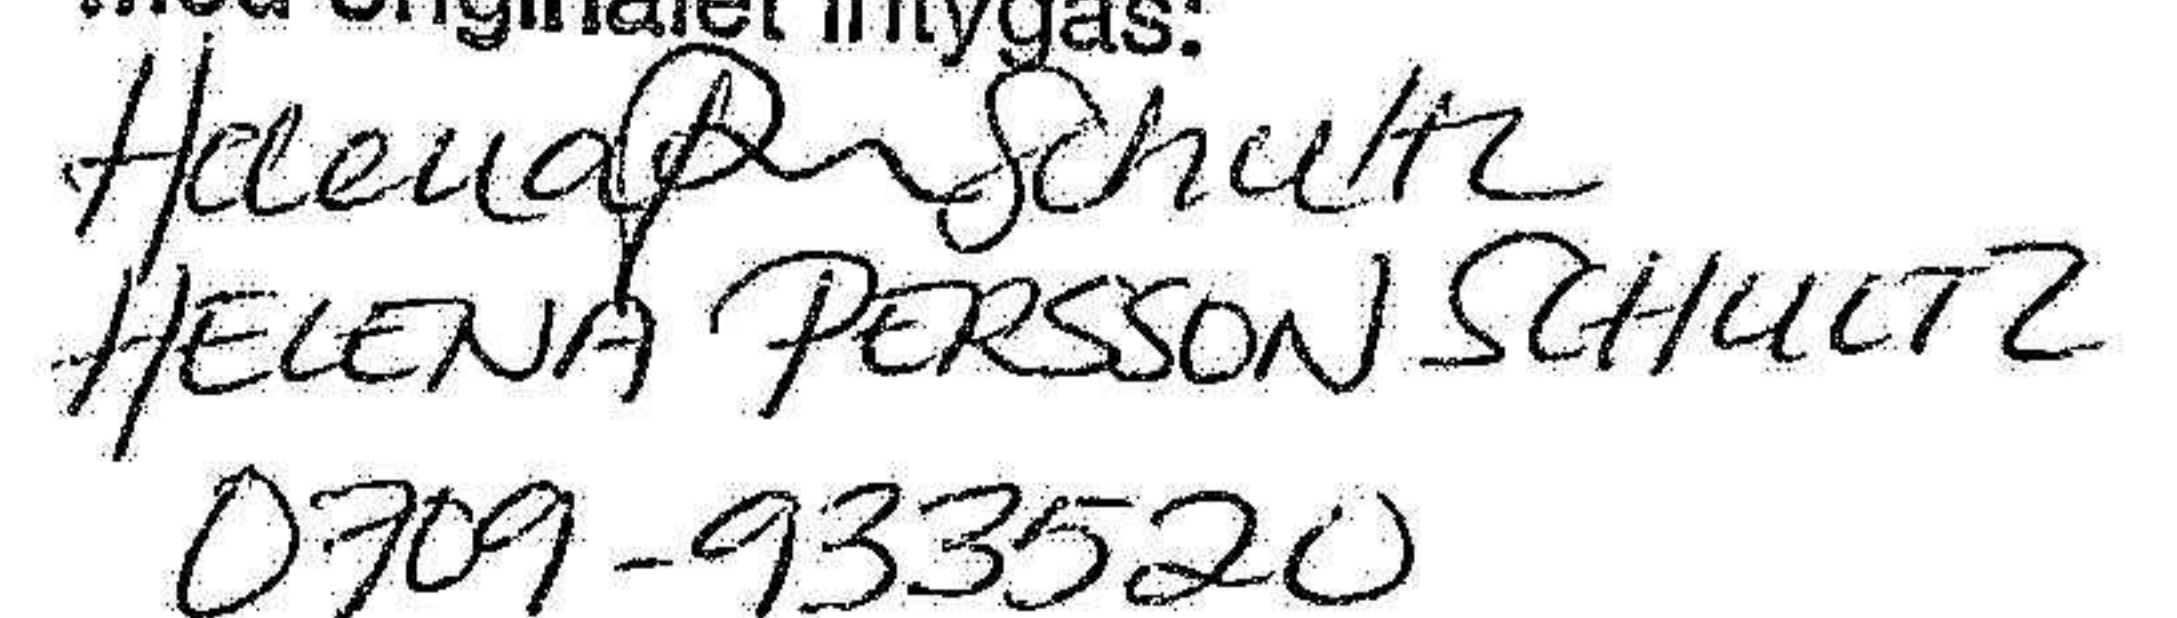 med originalet intygas:
Helena Pn Schultz
HELENA PERSSON SCHULTZ
0709-933520